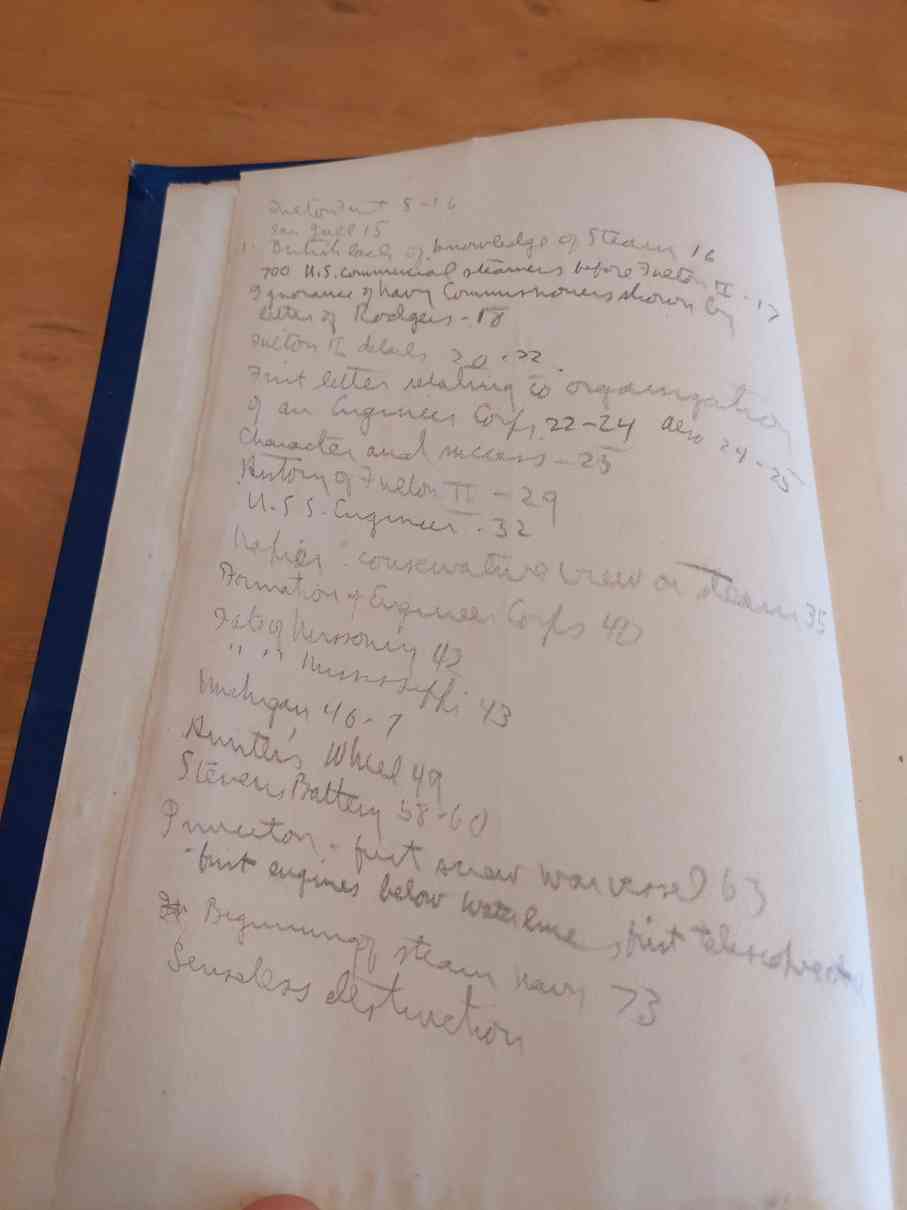 Fulton First 8-16
Sea Gull 15
British lack of knowledge of Steam 16
700 U.S. commercial steamers before Fulton II - 17
Ignorance of Navy Commissioners shown by
letter of Rodgers - 18
Fulton II details 20-22.
First letter relating to organization
of an Engineer Corps, 22-24 also 24-25
Character and success - 25
History of Fulton II - 29
U.S.S. Engineer - 32
conservative view on steam 35
Formation of Engineer Corps 40
Fate of Missouri 43
" " Mississippi 43
Michigan 46-7
Hunter's Wheel 49
Stevens Battery 58-60
Princeton - first screw war vessel 63
- first engines below waterline, first
Beginning of steam navy 73
Senseless destruction